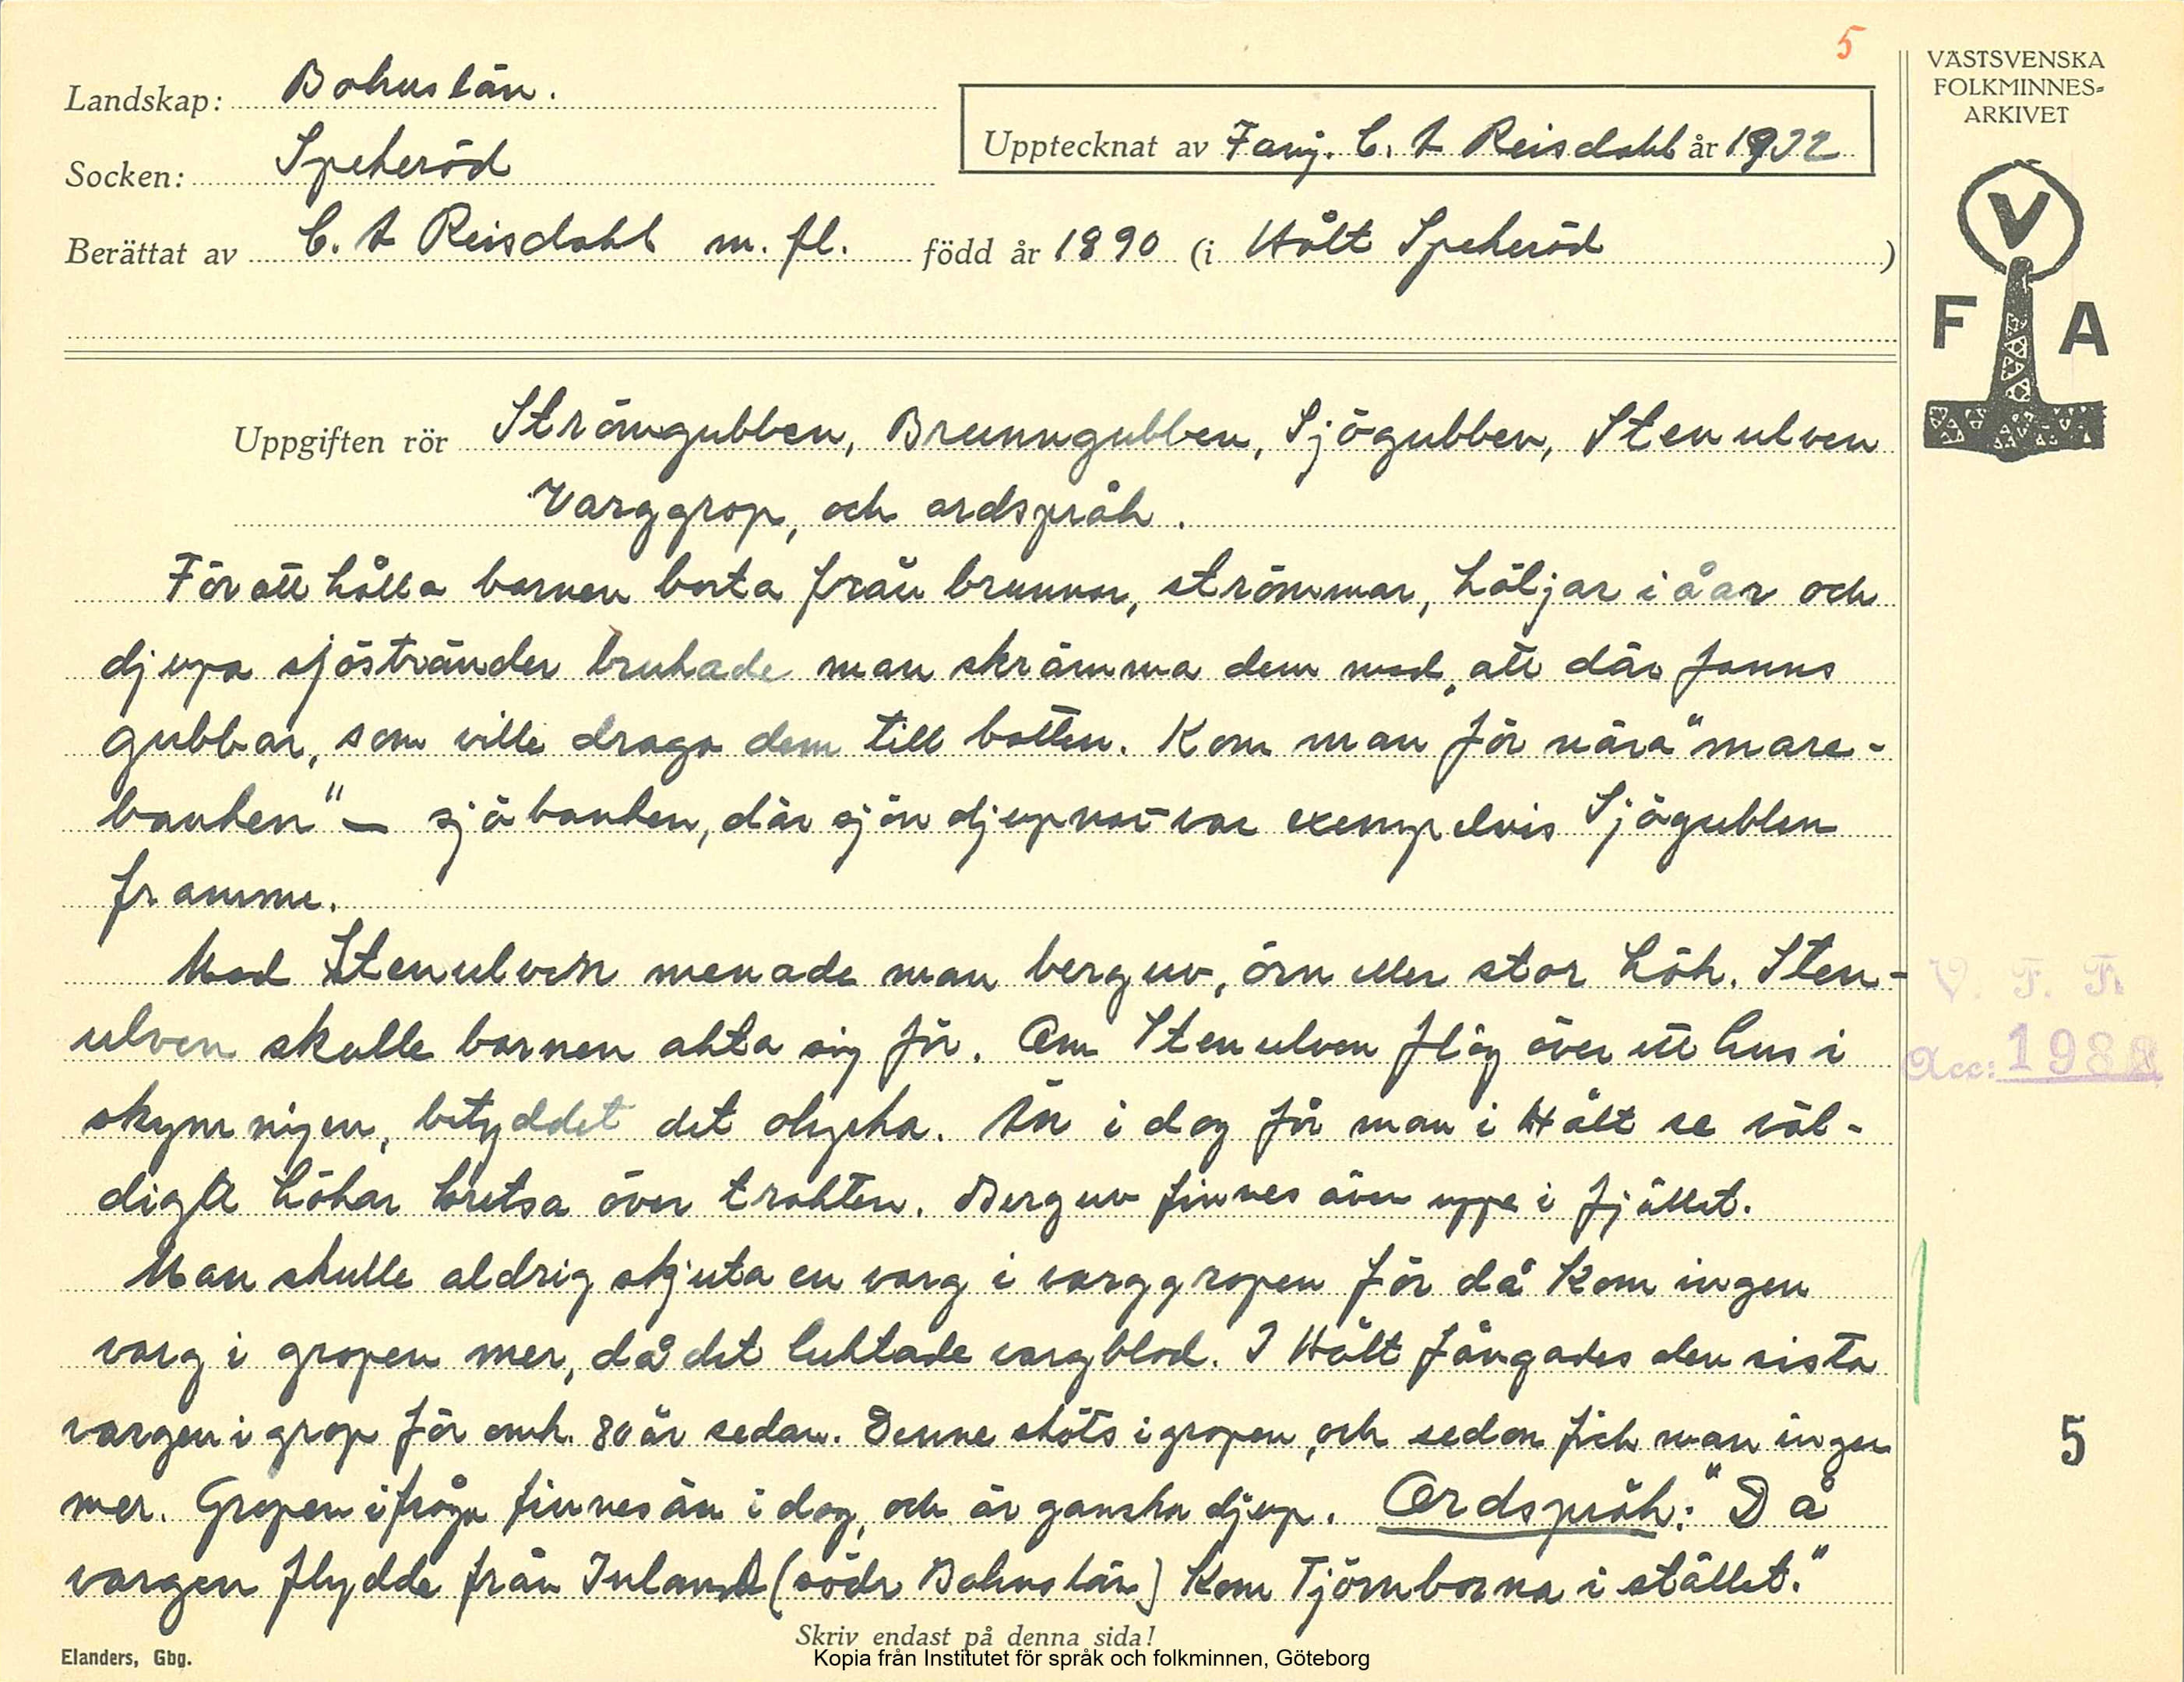 5
VÄSTSVENSKA
FOLKMINNES-
ARKIVET
Landskap: Bohuslän.
Upptecknat av Fanj. C. A Reisdahl år 1932
Socken: Spekeröd
Berättat av C. A Reisdahl m. fl. född år 1890 (i Hålt Spekeröd )
V
F A
Uppgiften rör Strömgubben, Brunngubben, Sjögubben, Stenulven
Varggrop, och ordspråk.
För att hålla barnen borta från brunnar, strömmar, höljar i åar och
djupa sjöstränder brukade man skrämma dem med, att där fanns
gubbar, som ville draga dem till botten. Kom man för nära "mare-
banken" — sjöbanken, där sjön djupnar var exempelvis Sjögubben
framme.
Med Stenulven menade man berguv, örn eller stor hök. Sten-
ulven skulle barnen akta sig för. Om Stenulven flög över ett hus i
skymnigen, betyddet det olycka. Än i dag får man i Hålt se väl-
digte hökar kretsa över trakten. Berguv finnes även uppe i fjället.
Man skulle aldrig skjuta en varg i varggropen för då kom ingen
varg i gropen mer, då det luktade vargblod. I Hålt fångades den sista
vargen i grop för omk. 80 år sedan. Denne sköts i gropen, och sedan fick man ingen
mer. Gropen ifråga finnes än i dag, och är ganska djup. Ordspråk: "Då
vargen flydde från Inland (södr Bohuslän) kom Tjörnborna i stället."
V. F. F.
Acc: 1988
5
Skriv endast på denna sida!
Elanders, Gbg.
Kopia från Institutet för språk och folkminnen, Göteborg